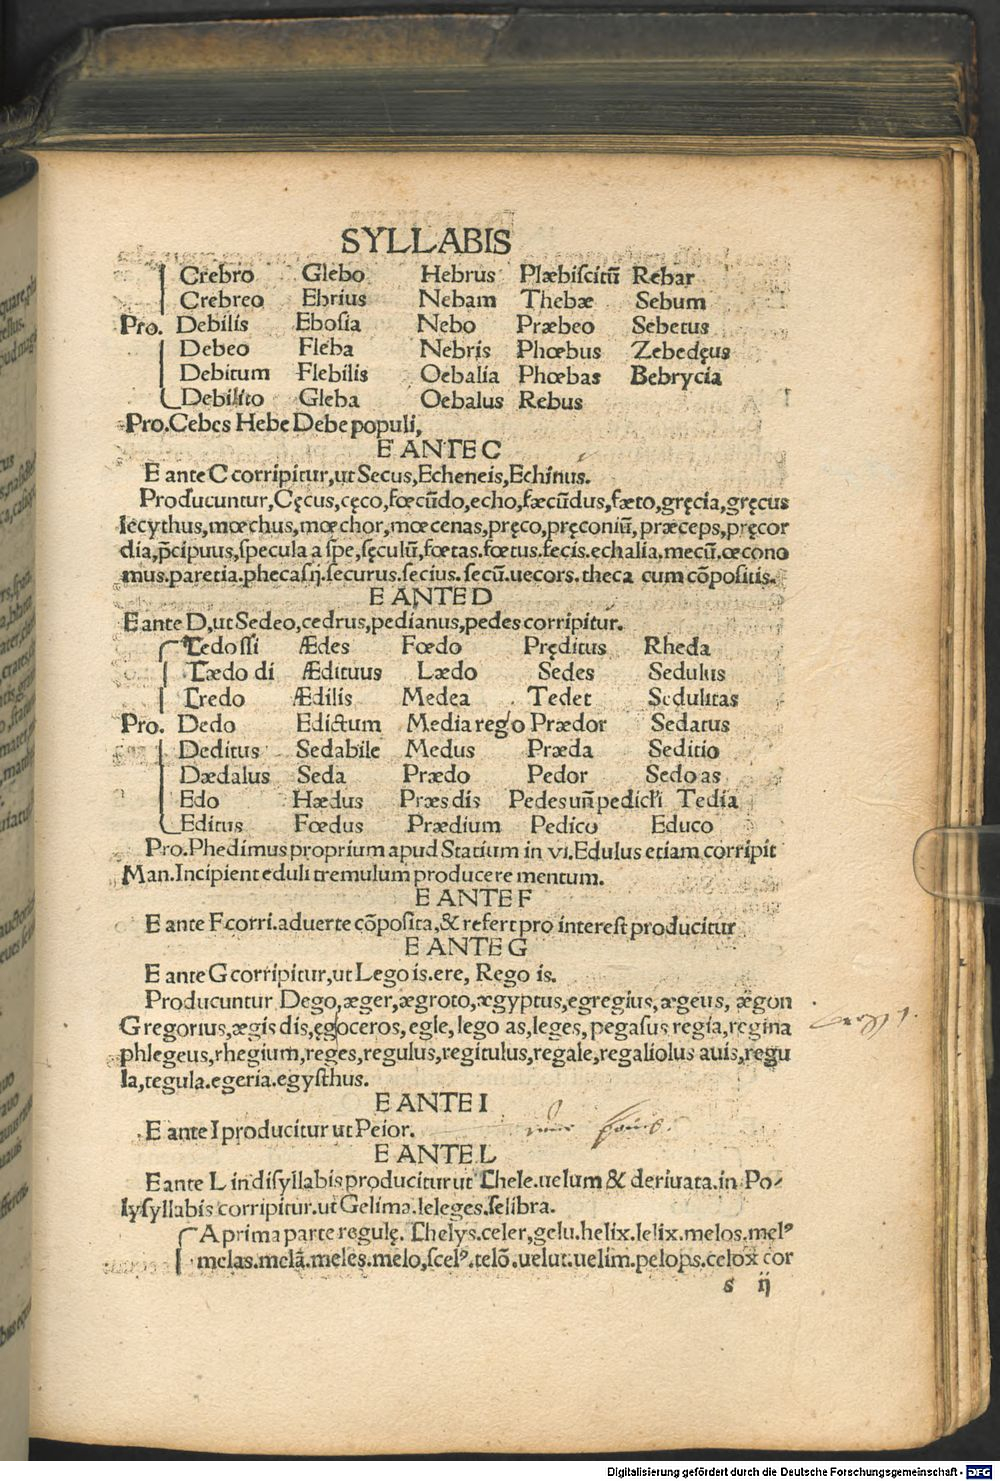 SYLLABIS
Crebro Glebo Hebrus Plæbiscitū Rebar
Crebreo Ebrius Nebam Thebæ Sebum
Pro. Debilis Ebosia Nebo Præbeo Sebetus
Debeo Fleba Nebris Phœbus Zebedęus
Debitum Flebilis Oebalia Phœbas Bebrycia
Debilito Gleba Oebalus Rebus
Pro.Cebes Hebe Debe populi,
E ANTE C
E ante C corripitur,ut Secus,Echeneis,Echinus.
Producuntur,Cęcus,cęco,fœcūdo,echo,fæcūdus,fæto,gręcia,gręcus
lecythus,mœchus,mœchor,mœcenas,pręco,pręconiū,præceps,pręcor
dia,p̄cipuus,specula a spe,sęculū,fœtas.fœtus.fecis.echalia,mecū.œcono
mus.paretia.phecasij.securus.secius.secū.uecors.theca cum cōpositis.
E ANTE D
E ante D,ut Sedeo,cedrus,pedianus,pedes corripitur.
Cedo ssi Ædes Fœdo Pręditus Rheda
Tædo di Ædituus Lædo Sedes Sedulus
Credo Ædilis Medea Tedet Sedulitas
Pro. Dedo Edictum Media regio Prædor Sedatus
Deditus Sedabile Medus Præda Seditio
Dædalus Seda Prædo Pedor Sedo as
Edo Hædus Præs dis Pedes un̄ pediculi Tedia
Editus Fœdus Prædium Pedico Educo
Pro.Phedimus proprium apud Statium in vi.Edulus etiam corripit
Man.Incipient eduli tremulum producere mentum.
E ANTE F
E ante F corri.aduerte cōposita,& refert pro interest producitur
E ANTE G
E ante G corripitur,ut Lego is.ere, Rego is.
Producuntur Dego,æger,ægroto,ægyptus,egregius,ægeus, ægon
Gregorius,ægis dis,ęgoceros,egle,lego as,leges,pegasus regia,regina
phlegeus,rhegium,reges,regulus,regitulus,regale,regaliolus auis,regu
la,tegula.egeria.egysthus.
E ANTE I
E ante I producitur ut Peior.
E ANTE L
E ante L in disyllabis producitur ut Chele.uelum & deriuata.in Po-
lysyllabis corripitur.ut Gelima.leleges.selibra.
A prima parte regulę. Chelys.celer,gelu.helix.lelix.melos.mel⁹
melas.melā.meles.melo,scel⁹.telō.uelut.uelim.pelops.celox cor
s ij
Digitalisierung gefördert durch die Deutsche Forschungsgemeinschaft - DFG